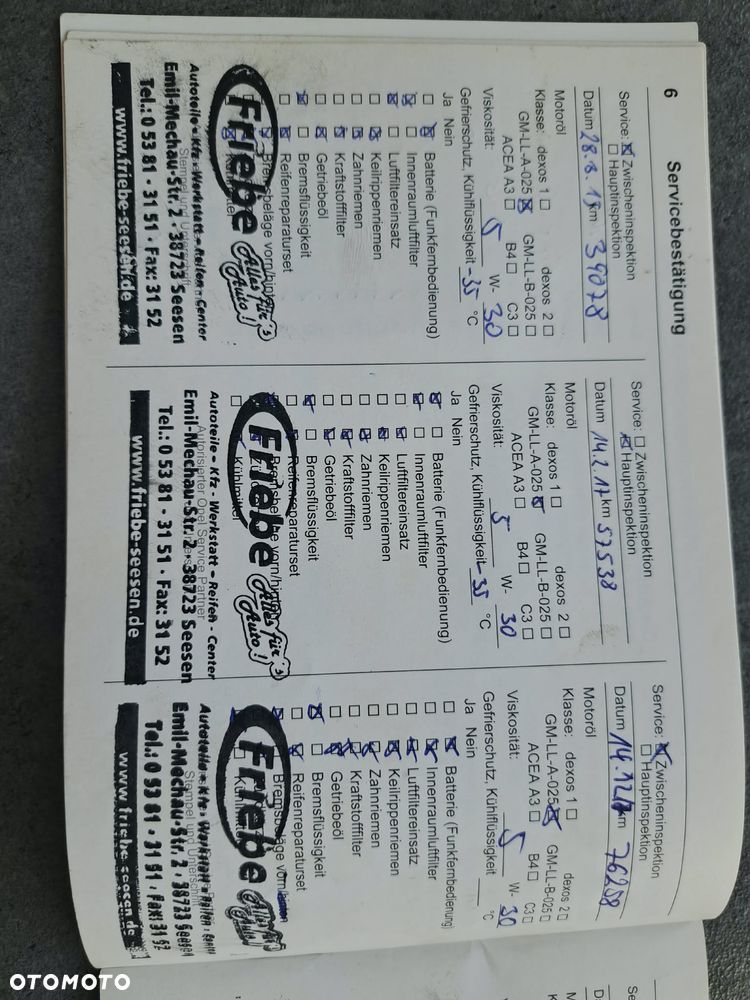 6 Servicebestätigung
Service: ☒ Zwischeninspektion
☐ Hauptinspektion
Datum 28.8.15 km 39078
Motoröl
Klasse: dexos 1 ☐ dexos 2 ☐
GM-LL-A-025 ☒ GM-LL-B-025 ☐
ACEA A3 ☐ B4 ☐ C3 ☐
Viskosität: 5 W- 30
Gefrierschutz, Kühlflüssigkeit -35 °C
Ja Nein
☐ ☒ Batterie (Funkfernbedienung)
☒ ☐ Innenraumluftfilter
☒ ☐ Luftfiltereinsatz
☐ ☒ Keilrippenriemen
☐ ☒ Zahnriemen
☐ ☒ Kraftstofffilter
☐ ☒ Getriebeöl
☒ ☐ Bremsflüssigkeit
☐ ☒ Reifenreparaturset
Bremsbeläge vorn/hinten
Friebe Alles für's Auto!
Autoteile - Kfz - Werkstatt - Reifen - Center
Stempel und Unterschrift
Emil-Mechau-Str. 2 · 38723 Seesen
Tel.: 0 53 81 - 31 51 · Fax: 31 52
www.friebe-seesen.de
Service: ☐ Zwischeninspektion
☒ Hauptinspektion
Datum 14.2.17 km 57538
Motoröl
Klasse: dexos 1 ☐ dexos 2 ☐
GM-LL-A-025 ☒ GM-LL-B-025 ☐
ACEA A3 ☐ B4 ☐ C3 ☐
Viskosität: 5 W- 30
Gefrierschutz, Kühlflüssigkeit -35 °C
Ja Nein
☒ ☐ Batterie (Funkfernbedienung)
☒ ☐ Innenraumluftfilter
☐ ☒ Luftfiltereinsatz
☐ ☒ Keilrippenriemen
☐ ☒ Zahnriemen
☐ ☒ Kraftstofffilter
☐ ☒ Getriebeöl
☒ ☐ Bremsflüssigkeit
Reifenreparaturset
Bremsbeläge vorn/hinten
Kühlmittel
Friebe Alles für's Auto!
Autoteile - Kfz - Werkstatt - Reifen - Center
Autorisierter Opel Service Partner
Emil-Mechau-Str. 2 · 38723 Seesen
Tel.: 0 53 81 - 31 51 · Fax: 31 52
www.friebe-seesen.de
Service: ☒ Zwischeninspektion
☐ Hauptinspektion
Datum 14.12.17 km 76258
Motoröl
Klasse: dexos 1 ☐ dexos 2 ☐
GM-LL-A-025 ☒ GM-LL-B-025 ☐
ACEA A3 ☐ B4 ☐ C3 ☐
Viskosität: 5 W- 30
Gefrierschutz, Kühlflüssigkeit °C
Ja Nein
☐ ☒ Batterie (Funkfernbedienung)
☐ ☒ Innenraumluftfilter
☐ ☒ Luftfiltereinsatz
☐ ☒ Keilrippenriemen
☐ ☒ Zahnriemen
☐ ☒ Kraftstofffilter
☐ ☒ Getriebeöl
☒ ☐ Bremsflüssigkeit
☐ ☒ Reifenreparaturset
Bremsbeläge vorn
Friebe Alles für's Auto!
Autoteile - Kfz - Werkstatt - Reifen - Center
Stempel und Unterschrift
Emil-Mechau-Str. 2 · 38723 Seesen
Tel.: 0 53 81 - 31 51 · Fax: 31 52
www.friebe-seesen.de
OTOMOTO